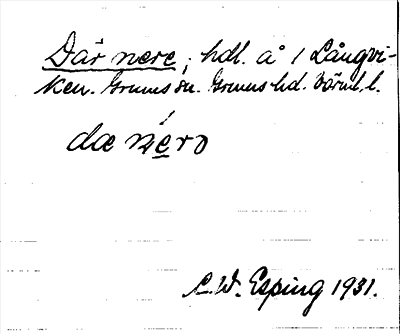 Där nere, hdl. å 1 Långvi-
ken. Grums sn. Grums hd. Värml. l.
dæ nero
C. W. Esping 1931.